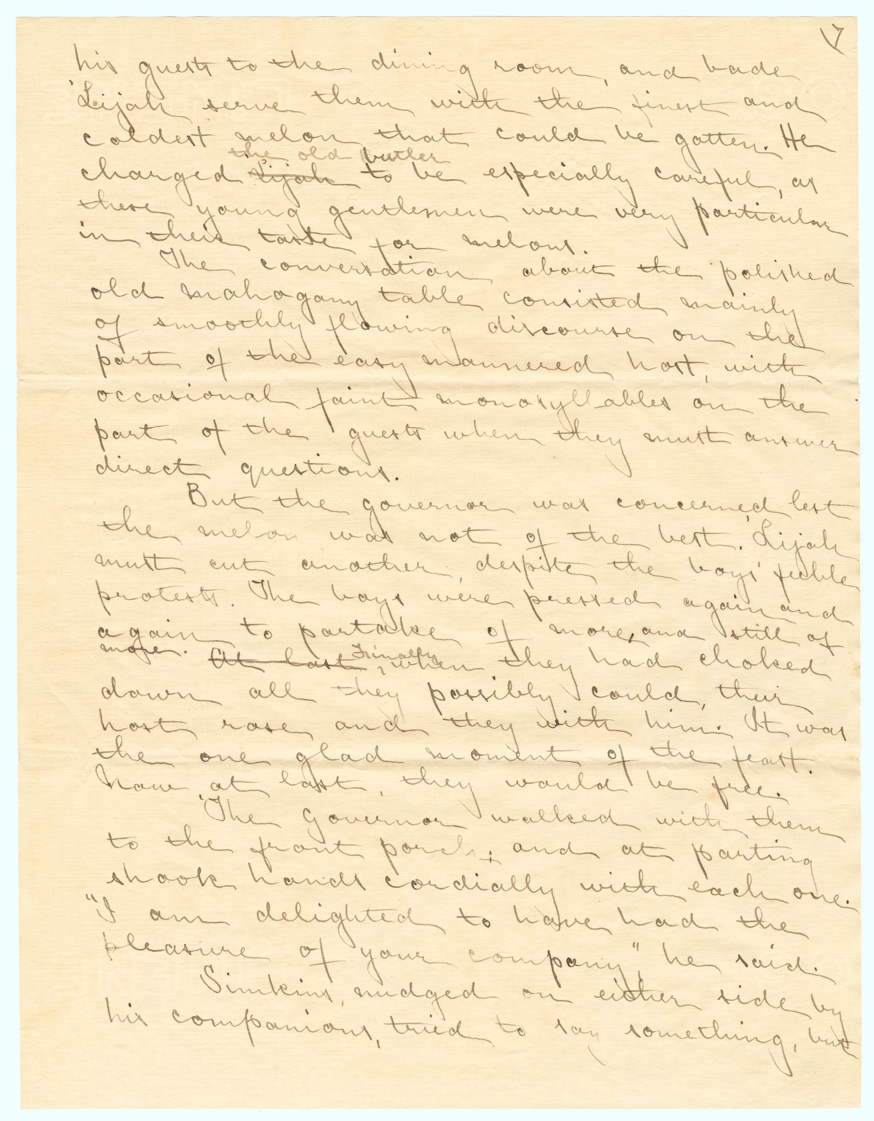 17
his guests to the dining room, and bade
'Lijah serve them with the finest and
coldest melon that could be gotten. He
the old butler
charged Lijah to be especially careful, as
these young gentlemen were very particular
in their taste for melons.
The conversation about the polished
old mahogany table consisted mainly
of smoothly flowing discourse on the
part of the easy mannered host, with
occasional faint monosyllables on the
part of the guests when they must answer
direct questions.
But the governor was concerned lest
the melon was not of the best. 'Lijah
must cut another, despite the boys' feeble
protests. The boys were pressed again and
again to partake of more, and still of
more. At last Finally, when they had choked
down all they possibly could, their
host rose and they with him. It was
the one glad moment of the feast.
Now, at last, they would be free.
The Governor walked with them
to the front porch; and at parting
shook hands cordially with each one.
"I am delighted to have had the
pleasure of your company", he said.
Simkins, nudged on either side by
his companions, tried to say something, but